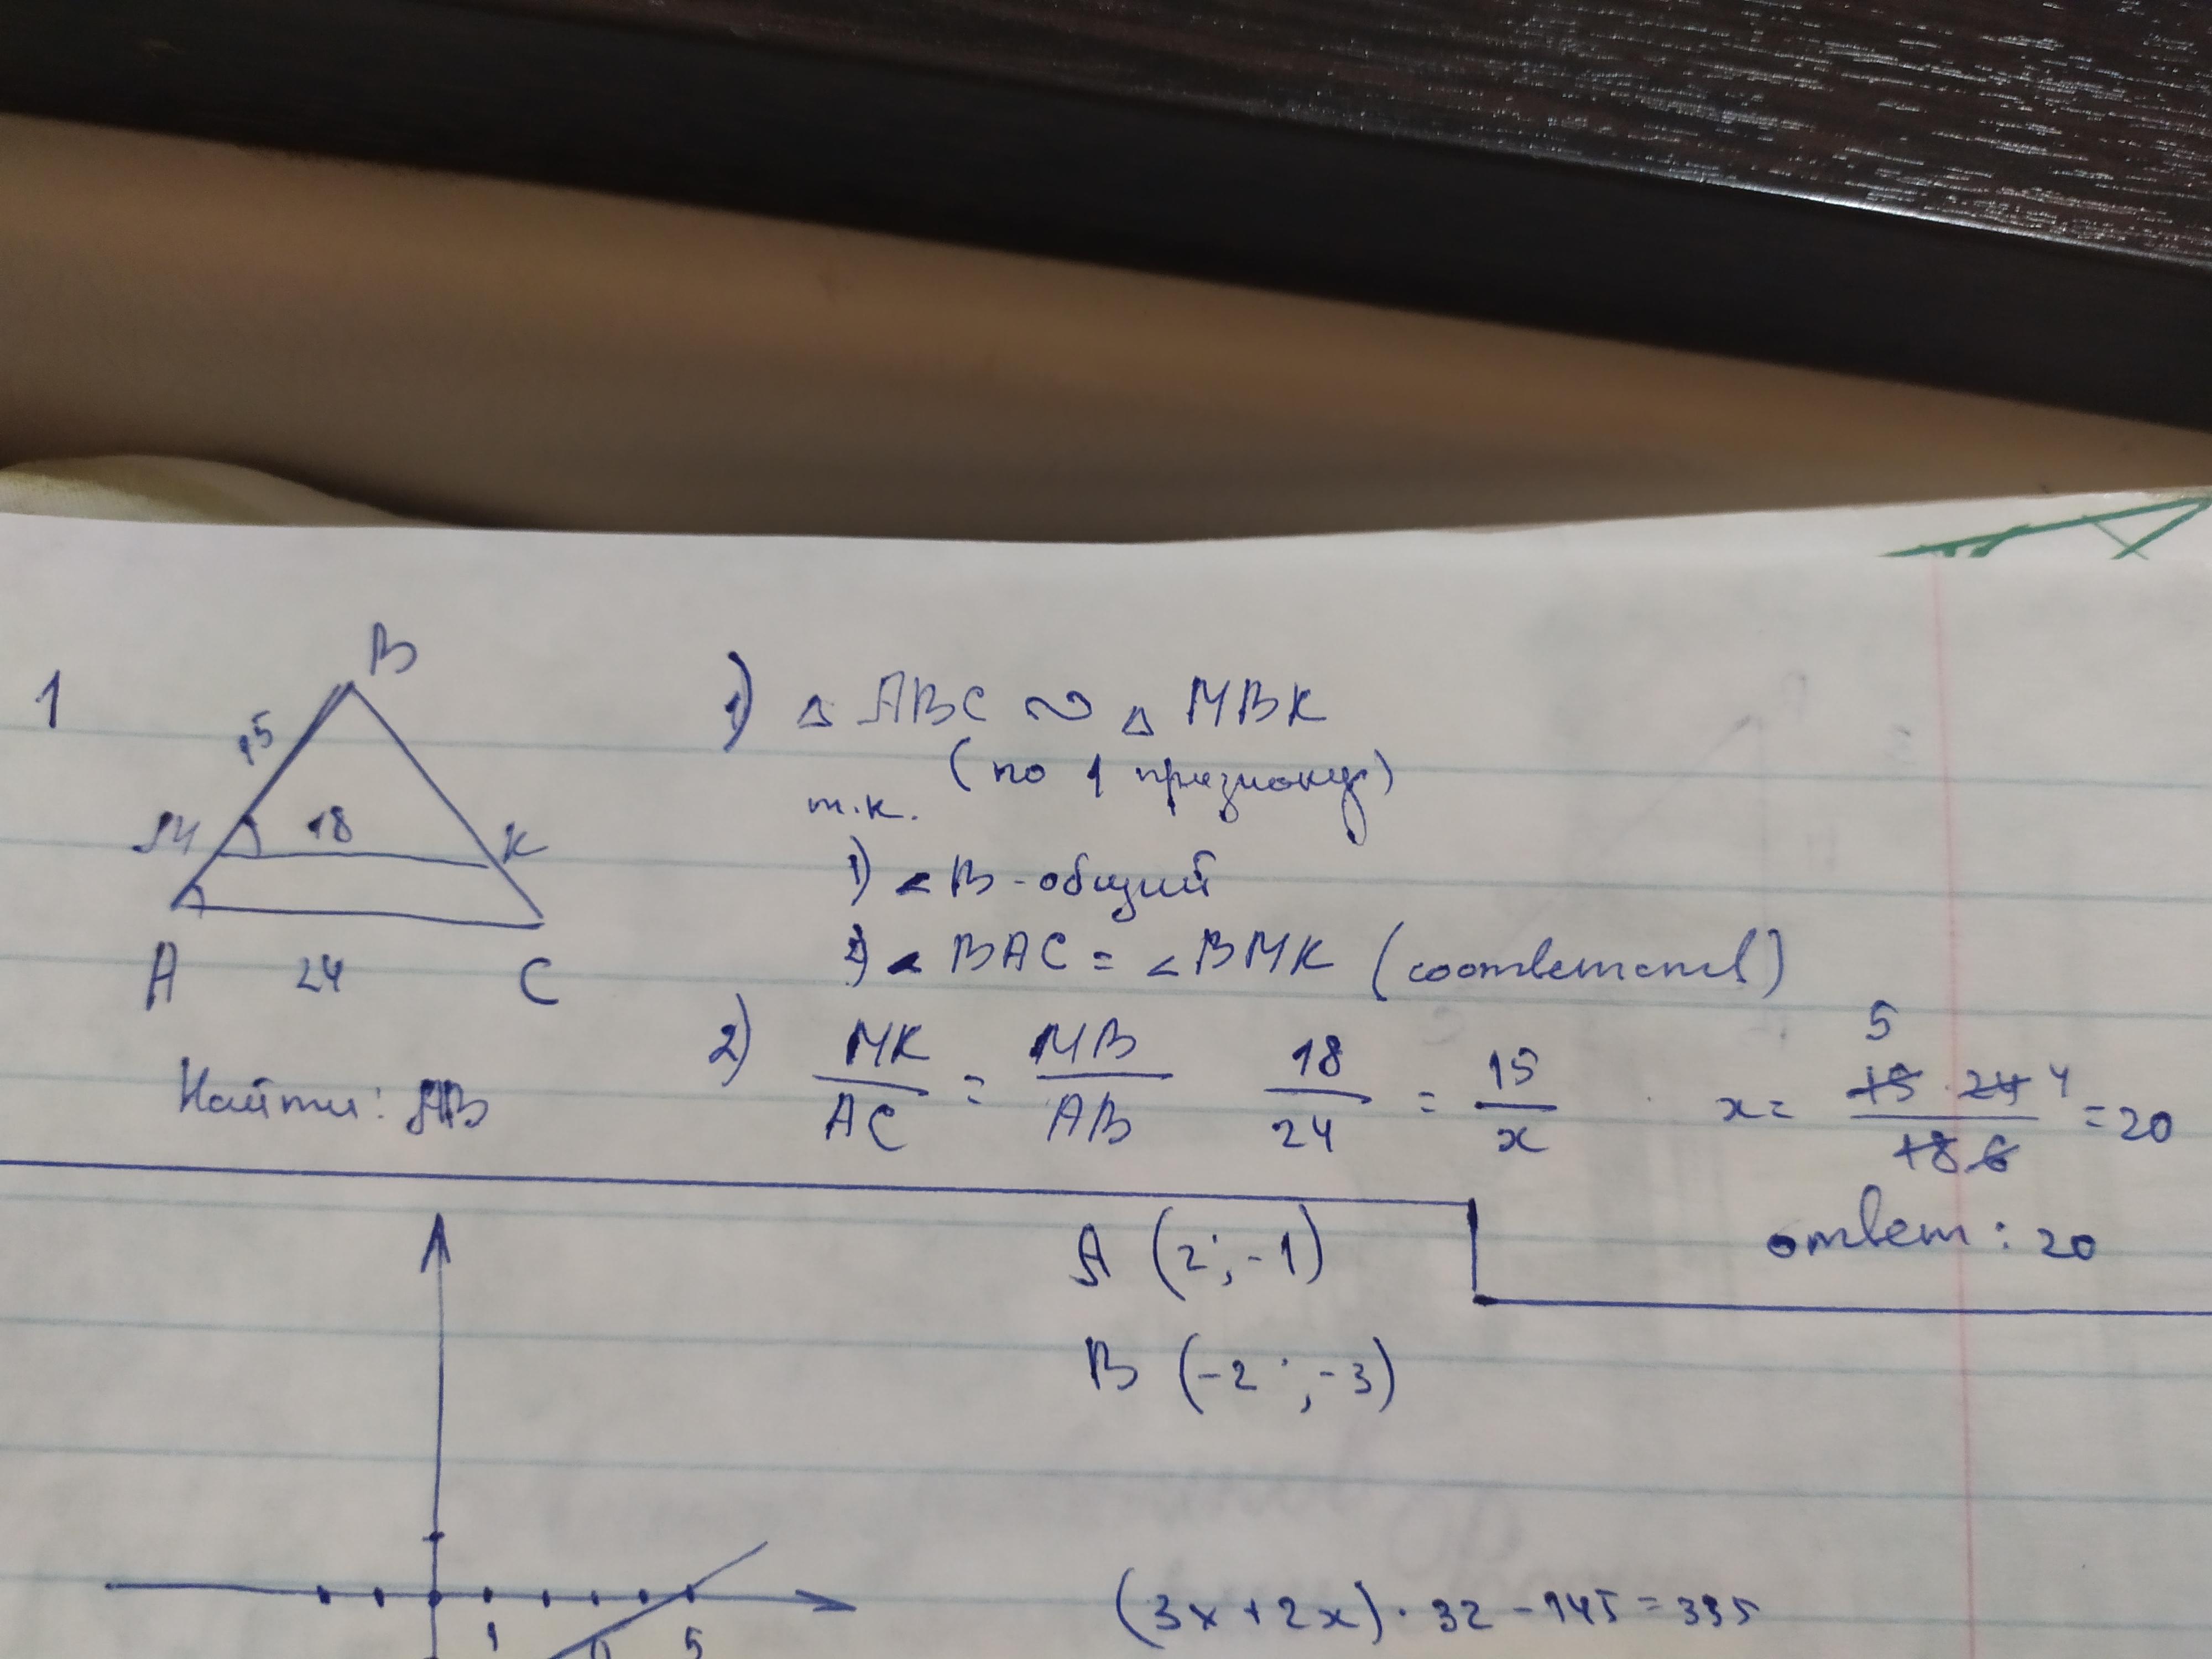 1
B
15
M 18 K
A 24 C
Найти: AB
1) △ ABC ∾ △ MBK
(по 1 признаку)
т.к.
1) ∠B - общий
2) ∠BAC = ∠BMK (соответств)
2) MK/AC = MB/AB 18/24 = 15/x x = 15·24/18 = 20
5 4
6
ответ: 20
A (2; -1)
B (-2; -3)
1 5
(3x + 2x) · 32 - 145 = 335